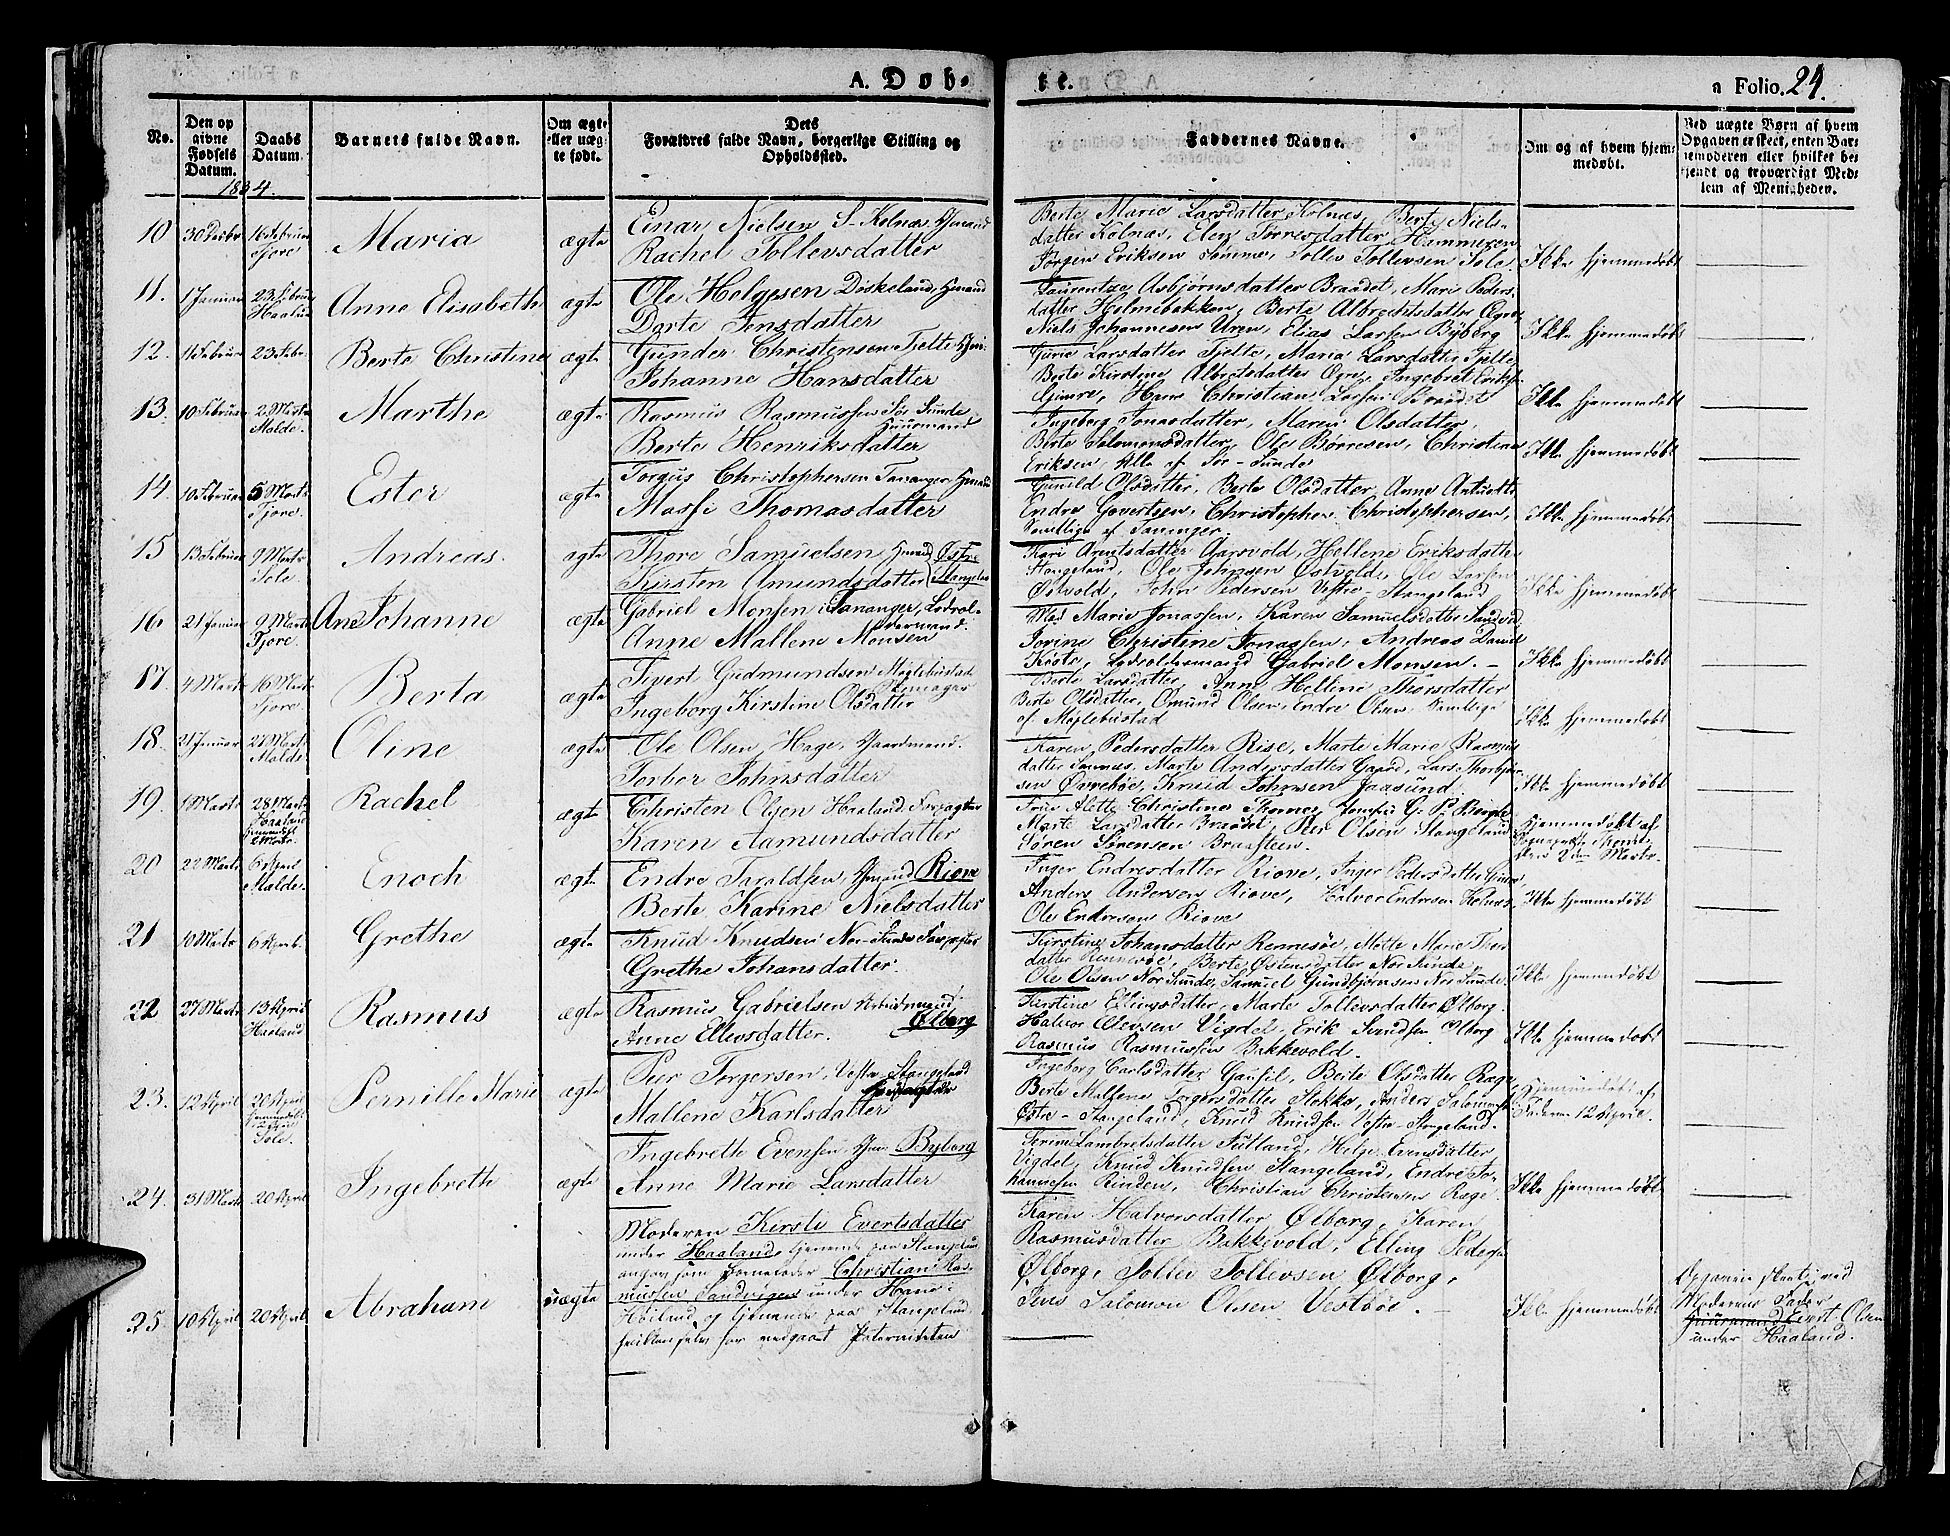 A. Døb-
te.
a Folio. 24.
No.
Den op
givne
Fødsels
Datum.
Daabs
Datum.
Barnets fulde Navn.
Om ægte
eller uæg-
te født.
Dets
Forældres fulde Navn, borgerlige Stilling og
Opholdssted.
Faddernes Navne.
Om og af hvem hjem-
medøbt.
Ved uægte Børn af hvem
Opgaven er skeet, enten Bar-
nemoderen eller hvilket be-
kjendt og troværdigt Med-
lem af Menigheden.
1834.
10
30 Decbr
16 Februar
Tjore
Maria
ægte
Einar Nielsen S-Kolnæs Huusmand
Rachel Tollevsdatter
Berte Marie Larsdatter Kolnæs, Berte Niels-
datter Kolnæs, Elen Tørresdatter Hammeren
Jørgen Eriksen Sømme, Tollev Tollevsen Sola.
Ikke hjemmedøbt
11.
1 Januar
23 Februar
Haaland
Anne Elisabeth
ægte
Ole Helgesen Diskeland,
Dorte Jensdatter
Laurentze Asbjørnsdatter Braadet, Mari Peders-
datter Holmebakken, Berte Albrechtsdatter
Niels Johannesen Uren, Elias Larsen Byberg
Ikke hjemmedøbt
12.
11 Februar
23 Febr.
Berte Christine
ægte
Gunder Christensen Tjelte
Johanne Hansdatter
Gurie Larsdatter Tjelte, Maria Larsdatter Tjelte
Berte Kirstine Albretsdatter Ingebret Eriksen
Gimre, Hans Christian Larsen Braadet
Ikke hjemmedøbt
13.
10 Februar
2 Marts
Malde.
Marthe
ægte
Rasmus Rasmussen Sør Sunde
Huusmand
Berte Henriksdatter
Ingeborg Jonasdatter, Maren Olsdatter,
Berte Salomonsdatter, Ole Børresen, Christian
Eriksen, Alle af Sør-Sunde
Ikke hjemmedøbt
14.
10 Februar
5 Marts
Tjore.
Ester
ægte
Torgus Christophersen Tananger
Massi Thomasdatter
Gunild Olsdatter, Berte Olsdatter, Anne
Endre Govertsen, Christopher Christophersen,
Samtlige af Tananger.
Ikke hjemmedøbt
15
13 Februar
9 Marts
Sole
Andreas.
ægte
Thore Samuelsen Østre
Kirsten Amundsdatter Stangeland
Kari Arntsdatter Aarsvold, Hellene Eriksdatter
Stangeland, Ole Johnsen Østvold, Ole Larsen
Østvold, John Pedersen Vestre-Stangeland
Ikke hjemmedøbt
16.
21 Januar
9 Marts
Tjore.
Ane Johanne
ægte
Gabriel Monsen Tananger, Lodsol-
dermand.
Anne Mallene Monsen
Marie Jonassen, Karen Samuelsdatter
Jorine Christine Jonassen, Andreas Daniel
Lodsoldermand Gabriel Monsen. -
Ikke hjemmedøbt
17.
4 Marts
16 Marts
Tjore.
Berta
ægte
Sivert Gudmundsen Møglebustad
Ingeborg Kirstine Olsdatter
Berte Larsdatter, Anne Helline Thorsdatter
Berte Olsdatter, Omund Olsen, Endre Olsen Samtlige
af Møglebustad
Ikke hjemmedøbt
18.
21 Januar
Marts
Malde.
Oline
ægte
Ole Olsen Hage, Gaardmand.
Torbor Johnsdatter
Karen Pedersdatter Rise, Marte Marie Rasmus
datter Marte Andersdatter Gaard, Lars Thorbjørn-
sen Øvrebøe, Knud Johnsen Jaasund.
Ikke hjemmedøbt
19.
1 Marts
28 Marts
Haaland
Rachel
ægte
Christen Olsen Haaland
Karen Aamundsdatter
Frue Alette Christine Jomfru G. P.
Marte Larsdatter Braadet, Peer Olsen Stangeland
Søren Sørensen Braasteen.
Hjemmedøbt af
2den Marts.
20
22 Marts
6 April
Malde.
Enoch
ægte
Endre Taraldsen Riove
Berte Karine Nielsdatter
Inger Endresdatter Riove, Inger Pedersdatter
Anders Andersen Riove, Halvor Endresen
Ole Endresen Riove
Ikke hjemmedøbt
21
10 Marts
6 April.
Grethe
ægte
Knud Knudsen Nor-Sunde
Grethe Johansdatter.
Kirstine Johansdatter Rennesøe, Mette Marie
datter Rennesøe, Berte Østensdatter Nor Sunde,
Ole Olsen Nor Sunde, Samuel Gundbjørnsen Nor Sunde.
Ikke hjemmedøbt
22
27 Marts
13 April
Haaland
Rasmus
ægte
Rasmus Gabrielsen Arbeidsmand
Ølberg
Anne Ellevsdatter.
Kirstine Ellingsdatter, Marte Tollevsdatter Ølberg.
Halvor Vigdel, Erik Svendsen Ølberg
Rasmus Rasmussen Bakkevold.
Ikke hjemmedøbt
23.
12 April
20 April
Sole.
Pernille Marie
ægte
Peer Torgersen, Vestre Stangeland
Mallene Karlsdatter
Ingeborg Carlsdatter Gausel, Berte Olsdatter Rege
Berte Mallene Torgersdatter Stokke, Anders Salomonsen
Østre-Stangeland, Knud Knudsen Vestre-Stangeland.
Hjemmedøbt af
Faderen 12 April.
24.
31 Marts
20 April
Ingebreth
ægte
Ingebreth Evensen Byberg
Anne Marie Larsdatter
Serine Lambretsdatter Jutland, Helje Evensdatter
Vigdel, Knud Knudsen Stangeland, Endre Jo-
hannesen Rinden, Christian Christensen Rege.
Ikke hjemmedøbt
25.
10 April
20 April
Abraham
uægte
Moderen Kirsti Evertsdatter
under Haaland, tjenende paa Stangeland
angav som Barnefader Christian Ras-
mussen Sandvigen under Hane
Høiland og tjenende paa Stangeland
hvilken selv har vedgaaet Paterniteten
Karen Halvorsdatter Ølberg, Karen
Rasmusdatter Bakkevold, Elling Pedersen
Ølberg, Tollev Tollevsen Ølberg,
Jens Salomon Olsen Vestbøe. -
Ikke hjemmedøbt
Opgaven skeete ved
Moderens Fader
Huusmand Evert Olsen
under Haaland.